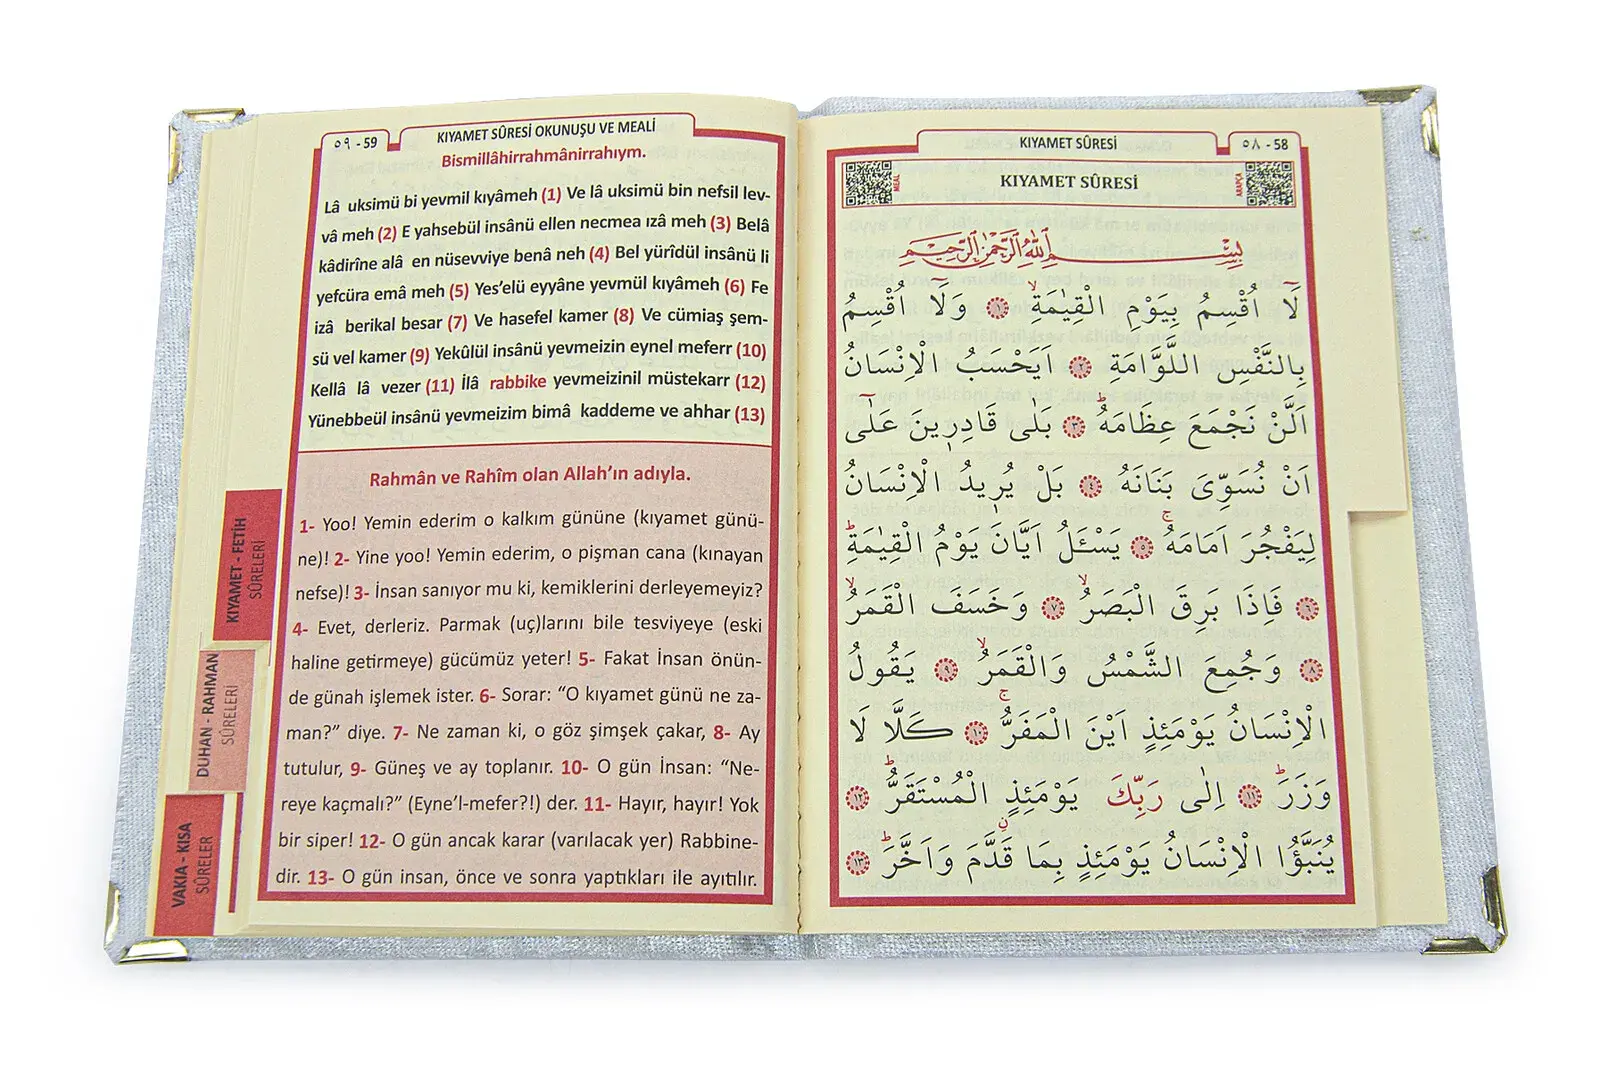 KIYAMET SÛRESİ
٥٨ - 58
MEAL
KIYAMET SÛRESİ
ARAPÇA
بِسْمِ اللّٰهِ الرَّحْمٰنِ الرَّحِيمِ
لَٓا اُقْسِمُ بِيَوْمِ الْقِيٰمَةِۙ ﴿١﴾ وَلَٓا اُقْسِمُ
بِالنَّفْسِ اللَّوَّامَةِ ﴿٢﴾ اَيَحْسَبُ الْاِنْسَانُ
اَلَّنْ نَجْمَعَ عِظَامَهُۜ ﴿٣﴾ بَلٰى قَادِرِينَ عَلٰٓى
اَنْ نُسَوِّىَ بَنَانَهُ ﴿٤﴾ بَلْ يُرِيدُ الْاِنْسَانُ
لِيَفْجُرَ اَمَامَهُۚ ﴿٥﴾ يَسْـَٔلُ اَيَّانَ يَوْمُ الْقِيٰمَةِۜ
﴿٦﴾ فَاِذَا بَرِقَ الْبَصَرُۙ ﴿٧﴾ وَخَسَفَ الْقَمَرُۙ
﴿٨﴾ وَجُمِعَ الشَّمْسُ وَالْقَمَرُۙ ﴿٩﴾ يَقُولُ
الْاِنْسَانُ يَوْمَئِذٍ اَيْنَ الْمَفَرُّۚ ﴿١٠﴾ كَلَّا لَا
وَزَرَۜ ﴿١١﴾ اِلٰى رَبِّكَ يَوْمَئِذٍ الْمُسْتَقَرُّۜ ﴿١٢﴾
يُنَبَّؤُا الْاِنْسَانُ يَوْمَئِذٍ بِمَا قَدَّمَ وَاَخَّرَۜ ﴿١٣﴾
٥٩ - 59
KIYAMET SÛRESİ OKUNUŞU VE MEALİ
Bismillâhirrahmânirrahıym.
Lâ uksimü bi yevmil kıyâmeh (1) Ve lâ uksimü bin nefsil lev-
vâ meh (2) E yahsebül insânü ellen necmea ızâ meh (3) Belâ
kâdirîne alâ en nüsevviye benâ neh (4) Bel yürîdül insânü li
yefcüra emâ meh (5) Yes'elü eyyâne yevmül kıyâmeh (6) Fe
izâ berikal besar (7) Ve hasefel kamer (8) Ve cümiaş şem-
sü vel kamer (9) Yekûlül insânü yevmeizin eynel meferr (10)
Kellâ lâ vezer (11) İlâ rabbike yevmeizinil müstekarr (12)
Yünebbeül insânü yevmeizim bimâ kaddeme ve ahhar (13)
Rahmân ve Rahîm olan Allah'ın adıyla.
1- Yoo! Yemin ederim o kalkım gününe (kıyamet günü-
ne)! 2- Yine yoo! Yemin ederim, o pişman cana (kınayan
nefse)! 3- İnsan sanıyor mu ki, kemiklerini derleyemeyiz?
4- Evet, derleriz. Parmak (uç)larını bile tesviyeye (eski
haline getirmeye) gücümüz yeter! 5- Fakat İnsan önün-
de günah işlemek ister. 6- Sorar: “O kıyamet günü ne za-
man?” diye. 7- Ne zaman ki, o göz şimşek çakar, 8- Ay
tutulur, 9- Güneş ve ay toplanır. 10- O gün İnsan: “Ne-
reye kaçmalı?” (Eyne'l-mefer?!) der. 11- Hayır, hayır! Yok
bir siper! 12- O gün ancak karar (varılacak yer) Rabbine-
dir. 13- O gün insan, önce ve sonra yaptıkları ile ayıtılır.
KIYAMET - FETİH
SÛRELERİ
DUHAN - RAHMAN
SÛRELERİ
VAKIA - KISA
SÛRELER